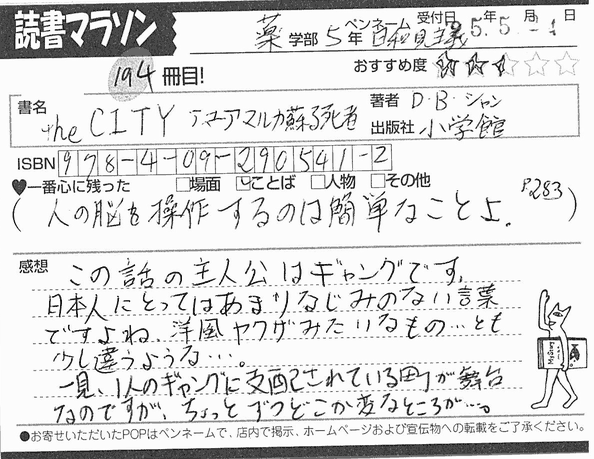 読書マラソン
薬 学部 5 年 ペンネーム 日和見主義 受付日 25年5月21日
194 冊目! おすすめ度
書名 the CITY アユアマルカ蘇る死者
著者 D・B・シャン
出版社 小学館
ISBN 978-4-09-290541-2
♥一番心に残った □場面 □ことば □人物 □その他
(人の脳を操作するのは簡単なことよ。 P283)
感想 この話の主人公はギャングです。
日本人にとってはあまりなじみのない言葉
ですよね。洋風ヤクザみたいなもの…とも
少し違うような…。
一見、1人のギャングに支配されている町が舞台
なのですが、ちょっとずつどこか変なところが…。
●お寄せいただいたPOPはペンネームで、店内で掲示、ホームページおよび宣伝物への転載をご了承ください。